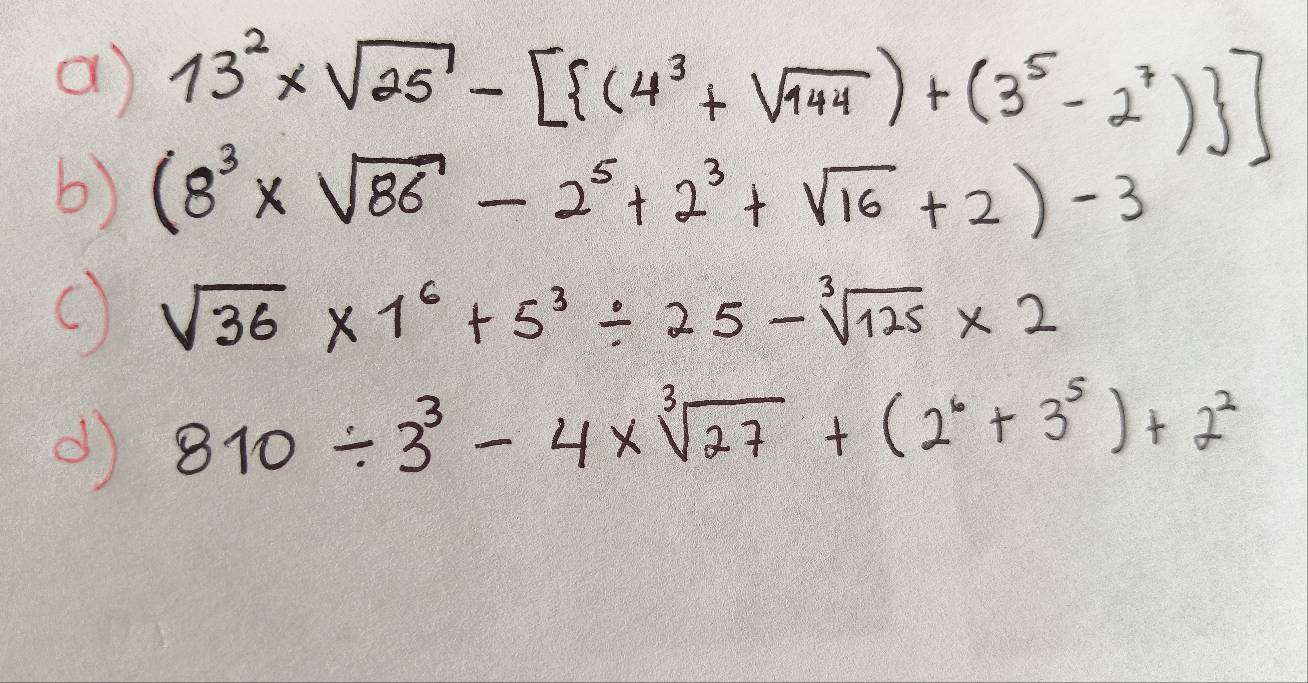 a) 13² × √25 − [{(4³ + √144) + (3⁵ − 2⁷)}]
b) (8³ × √86 − 2⁵ + 2³ + √16 + 2) − 3
c) √36 × 1⁶ + 5³ ÷ 25 − ³√125 × 2
d) 810 ÷ 3³ − 4 × ³√27 + (2⁶ + 3⁵) + 2²